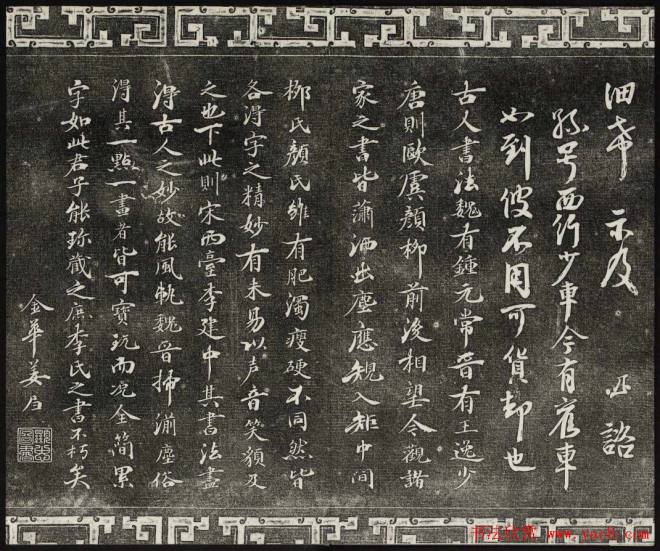 示及
孫号西行少車今有舊車
如到彼不用可貨却也
古人書法魏有鍾元常晉有王逸少
唐則歐虞顏柳前後相望今觀諸
家之書皆蕭洒出塵應規入矩中間
柳氏顏氏雖有肥濁瘦硬不同然皆
各得字之精妙有未易以声音笑貌及
之也下此則宋西臺李建中其書法盡
得古人之妙故能風軌魏晉掃湔塵俗
得其一點一畫者皆可寶玩而况全簡累
字如此君子能珎藏之庶李氏之書不朽矣
金華姜
书法欣赏
www.yac8.com